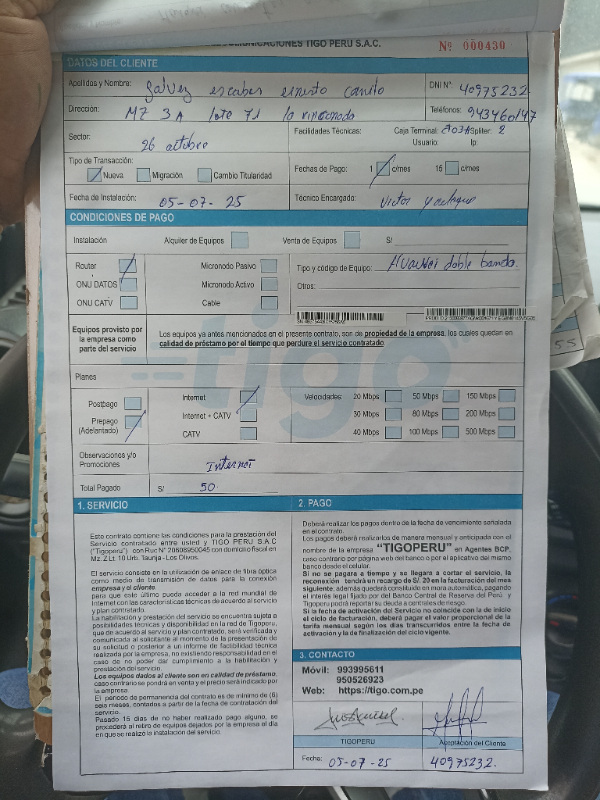 COMUNICACIONES TIGO PERU S.A.C.
Nº 000430
DATOS DEL CLIENTE
Apellidos y Nombre: Galvez escobes ernesto Camilo DNI Nº: 40975232
Dirección: MZ 3A lote 71 la rinconada Teléfonos: 943460147
Sector: 26 octubre Facilidades Técnicas: Caja Terminal: Spliter: 2
Usuario: Ip:
Tipo de Transacción:
Nueva Migración Cambio Titularidad Fechas de Pago: 1 c/mes 16 c/mes
Fecha de Instalación: 05-07-25 Técnico Encargado: Victor
CONDICIONES DE PAGO
Instalación Alquiler de Equipos Venta de Equipos S/
Router Micronodo Pasivo Tipo y código de Equipo: Huawei doble banda.
ONU DATOS Micronodo Activo Otros:
ONU CATV Cable
Equipos provisto por la empresa como parte del servicio
Los equipos ya antes mencionados en el presente contrato, son de propiedad de la empresa, los cuales quedan en
calidad de préstamo por el tiempo que perdure el servicio contratado.
tigo
Planes
Postpago
Prepago (Adelantado)
Internet
Internet + CATV
CATV
Velocidades 20 Mbps 50 Mbps 150 Mbps
30 Mbps 80 Mbps 200 Mbps
40 Mbps 100 Mbps 500 Mbps
Observaciones y/o Promociones Internet
Total Pagado S/ 50.
1. SERVICIO
Este contrato contiene las condiciones para la prestación del
Servicio contratado entre usted y TIGO PERU S.A.C
("Tigoperu") con Ruc N° 20608950045 con domicilio fiscal en
Mz. Z Lt. 10 Urb. Taurija - Los Olivos.
El servicio consiste en la utilización de enlace de fibra óptica
como medio de transmisión de datos para la conexión
empresa y el cliente
para que este último pueda acceder a la red mundial de
Internet con las características técnicas de acuerdo al servicio
y plan contratado.
La habilitación y prestación del servicio se encuentra sujeta a
posibilidades técnicas y disponibilidad en la red de Tigoperu,
que de acuerdo al servicio y plan contratado, será verificada y
comunicada al solicitante al momento de la presentación de
su solicitud o posterior a un informe de factibilidad técnica
realizada por la empresa, no existiendo responsabilidad en el
caso de no poder dar cumplimiento a la habilitación y
prestación del servicio.
Los equipos dados al cliente son en calidad de préstamo,
caso contrario se pondrá en venta y el precio será indicado por
la empresa.
El periodo de permanencia del contrato es de mínimo de (6)
seis meses, contados a partir de la fecha de contratación del
servicio.
Pasado 15 días de no haber realizado pago alguno, se
procederá al retiro de equipos dejados por la empresa el día
en que se realizo la instalación del servicio.
2. PAGO
Deberá realizar los pagos dentro de la fecha de vencimiento señalada
en el contrato.
Los pagos deberá realizarlos de manera mensual y anticipada con el
nombre de la empresa "TIGOPERU" en Agentes BCP,
caso contrario por página web del banco o por el aplicativo del mismo
banco desde el celular.
Si no se pagara a tiempo y se llegara a cortar el servicio, la
reconexión tendrá un recargo de S/. 20 en la facturación del mes
siguiente, además quedará constituido en mora automática, pagando
el interés legal fijado por del Banco Central de Reserva del Perú. Y
Tigoperu podrá reportar su deuda a centrales de riesgo.
Si la fecha de activación del Servicio no coincide con la de inicio
el ciclo de facturación, deberá pagar el valor proporcional de la
tarifa mensual según los días transcurridos entre la fecha de
activación y la de finalización del ciclo vigente.
3. CONTACTO
Móvil: 993995611
950526923
Web: https://tigo.com.pe
TIGOPERU Aceptación del Cliente
Fecha: 05-07-25 40975232.
55